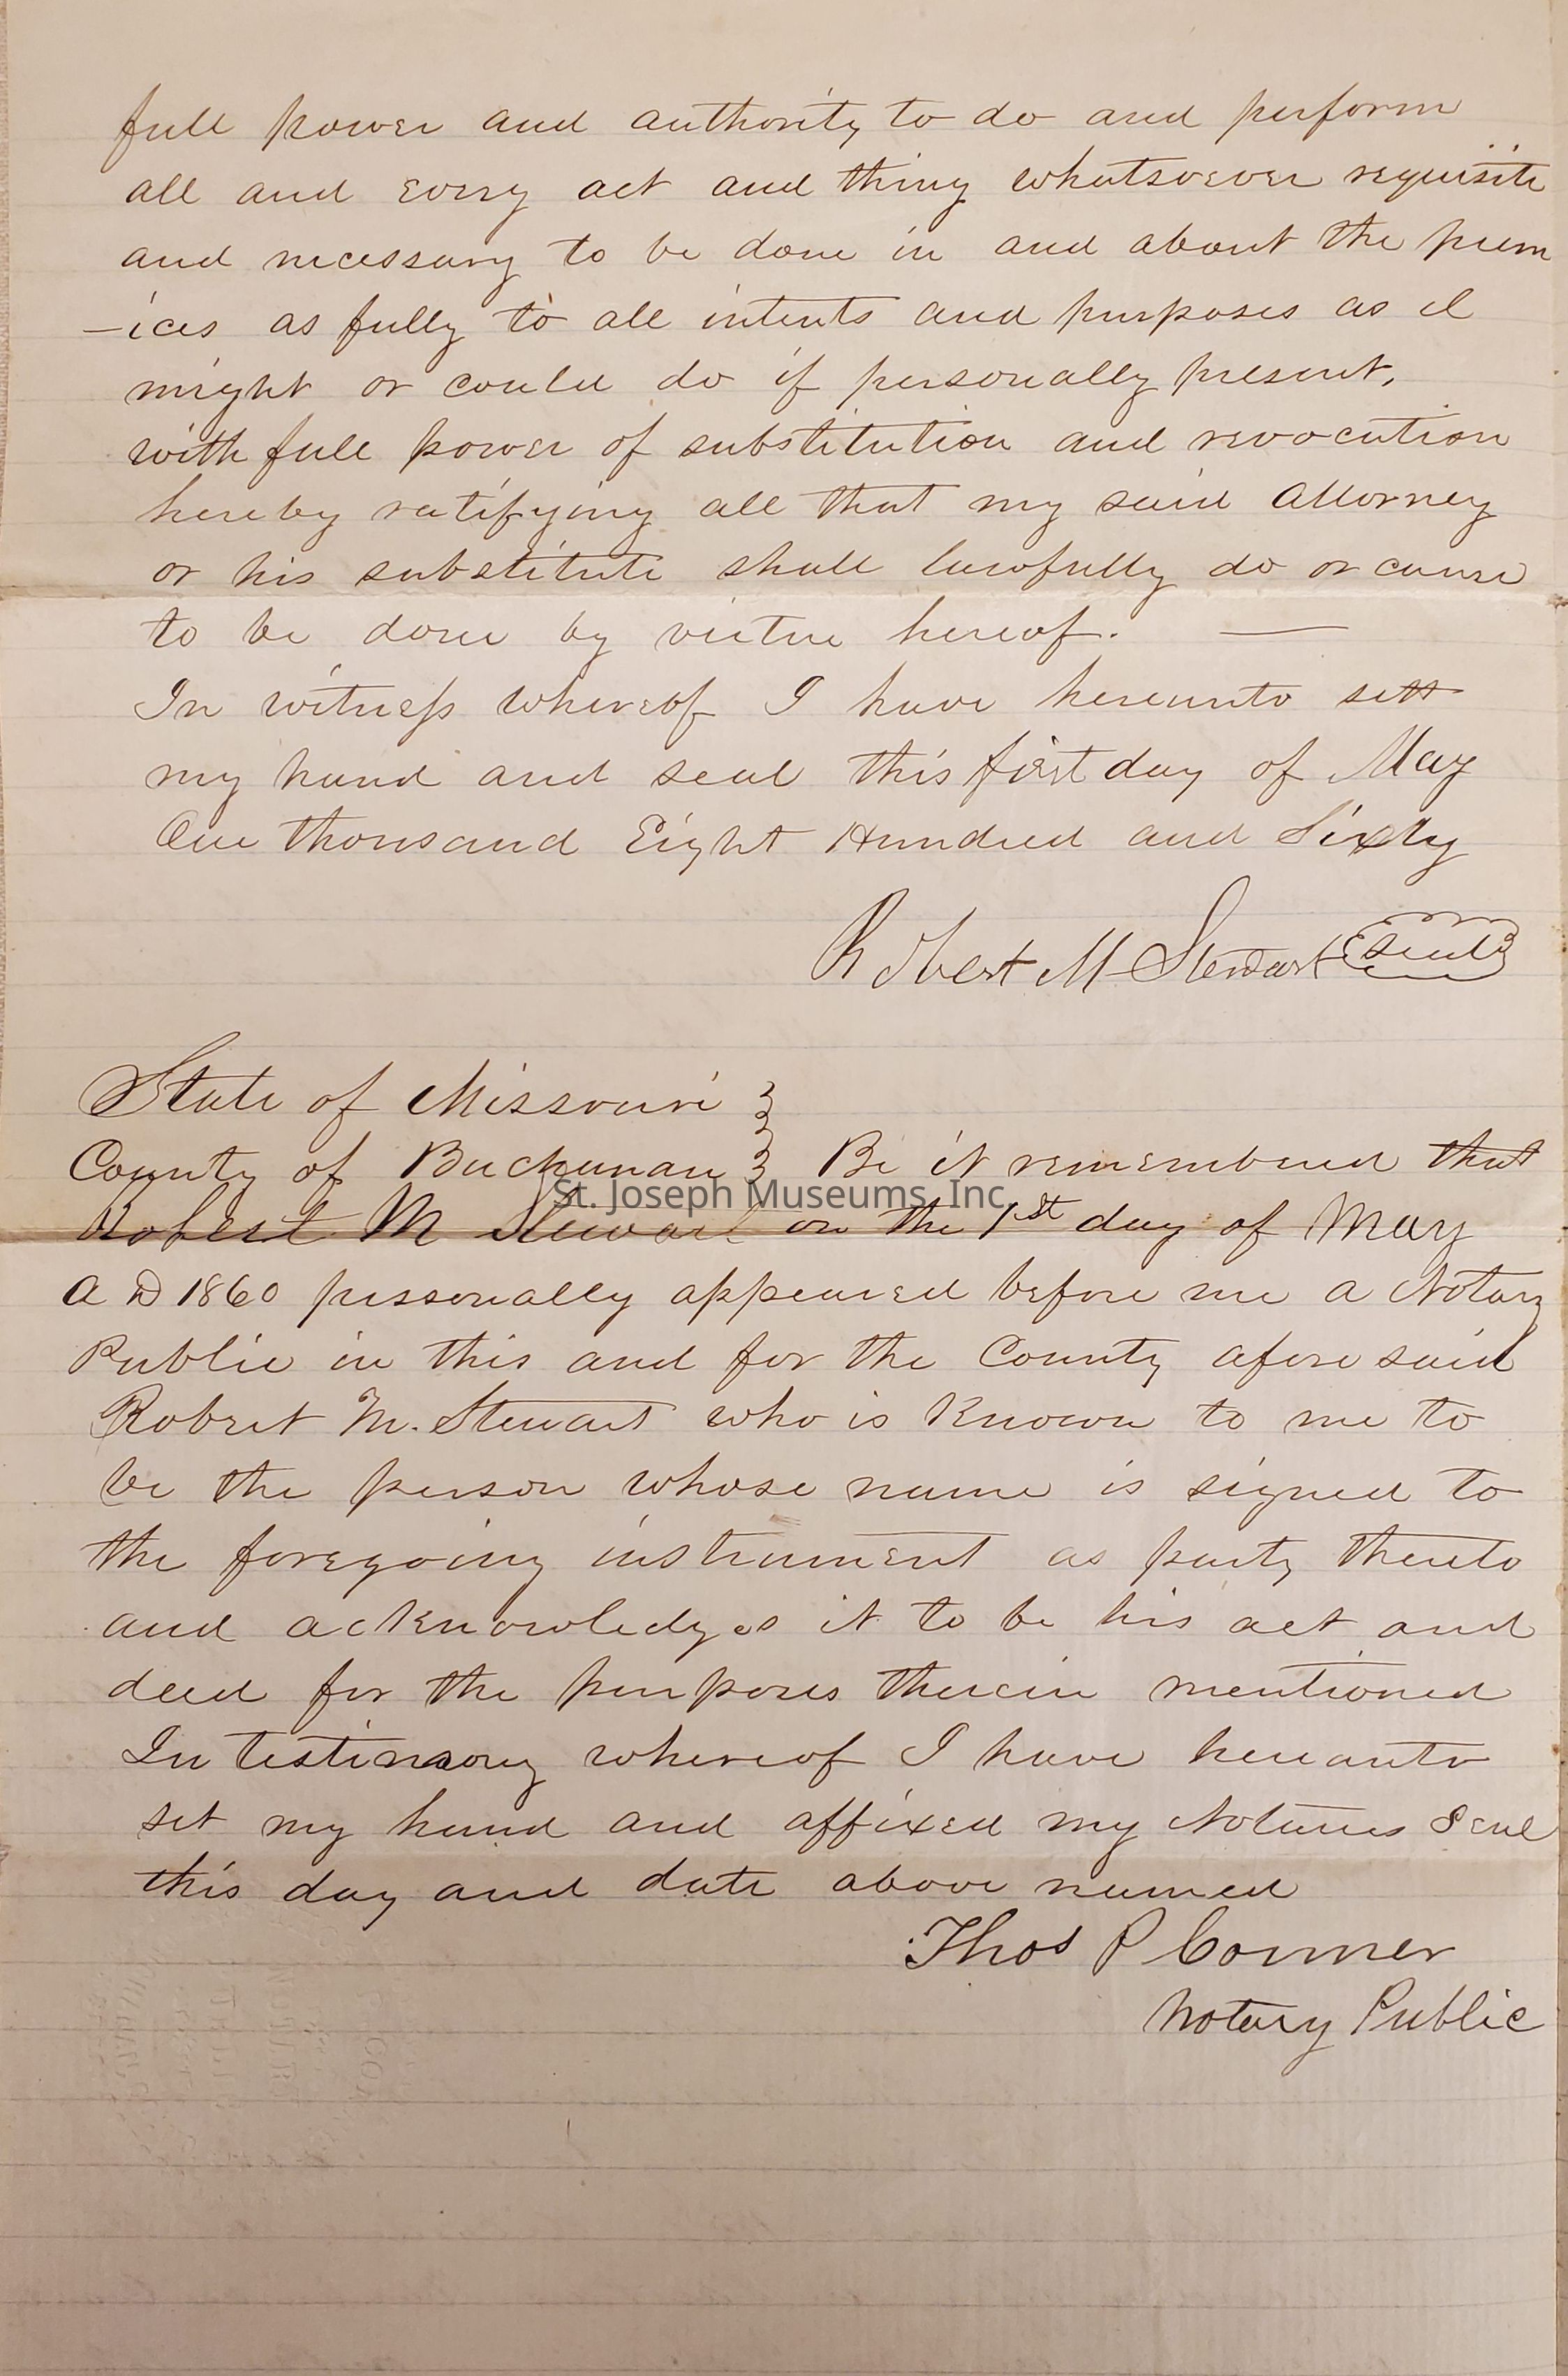 full power and authority to do and perform
all and every act and thing whatsoever requisite
and necessary to be done in and about the prem
-ices as fully to all intents and purposes as I
might or could do if personally present,
with full power of substitution and revocation
hereby ratifying all that my said Attorney
or his substitute shall lawfully do or cause
to be done by virtue hereof. —
In witness whereof I have hereunto sett
my hand and seal this first day of May
One thousand Eight Hundred and Sixty
Robert M Stewart seal
State of Missouri }
County of Buchanan } Be it remembered that
St. Joseph Museums, Inc.
Robert M Stewart on the 1st day of May
A D 1860 personally appeared before me a Notary
Public in this and for the County afore said
Robert M. Stewart who is Known to me to
be the person whose name is signed to
the foregoing instrument as party thereto
and acknowledges it to be his act and
deed for the purposes therein mentioned
In testimony whereof I have hereunto
set my hand and affixed my Notaries Seal
this day and date above named
Thos P Conner
Notary Public